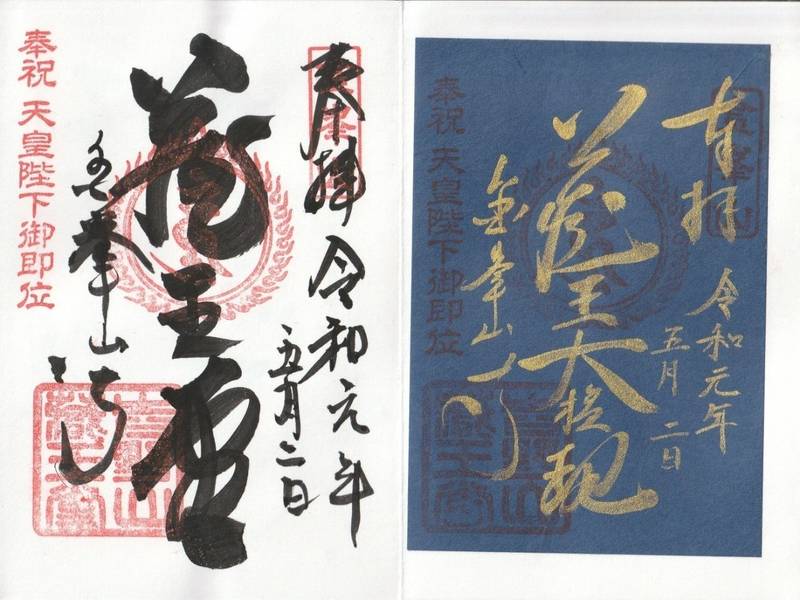 奉拝
令和元年
五月二日
蔵王大権現
金峯山寺
奉祝 天皇陛下御即位
奉拝
令和元年
五月二日
蔵王堂
金峯山寺
奉祝 天皇陛下御即位